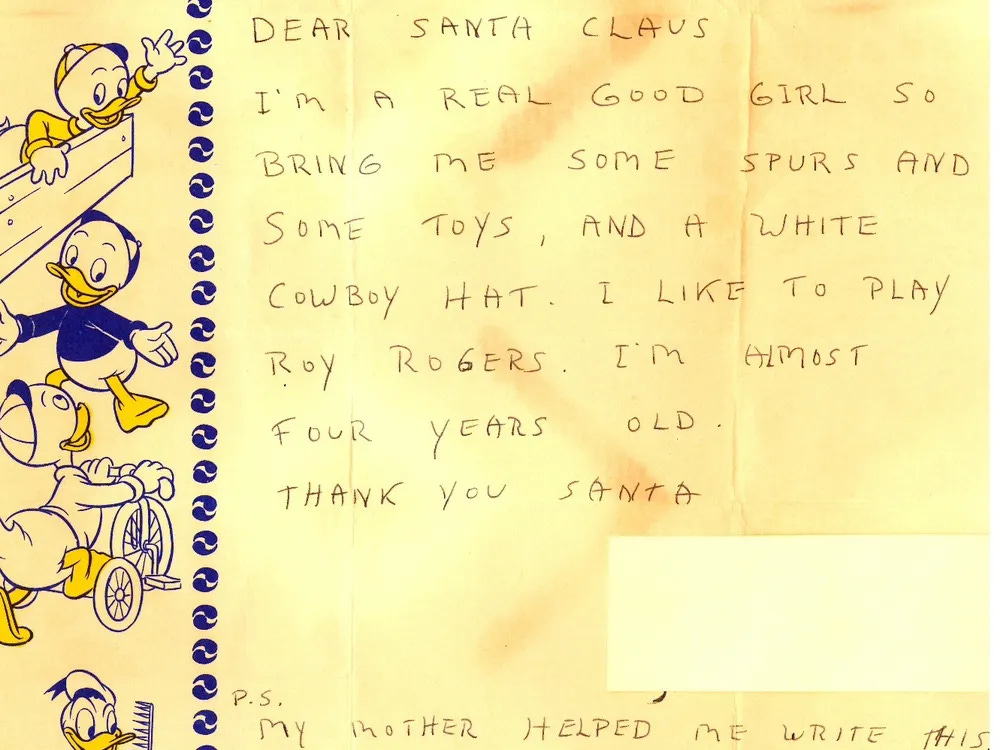 DEAR SANTA CLAUS
I'M A REAL GOOD GIRL SO
BRING ME SOME SPURS AND
SOME TOYS, AND A WHITE
COWBOY HAT. I LIKE TO PLAY
ROY ROGERS. I'M ALMOST
FOUR YEARS OLD.
THANK YOU SANTA
P.S.
MY MOTHER HELPED ME WRITE THIS